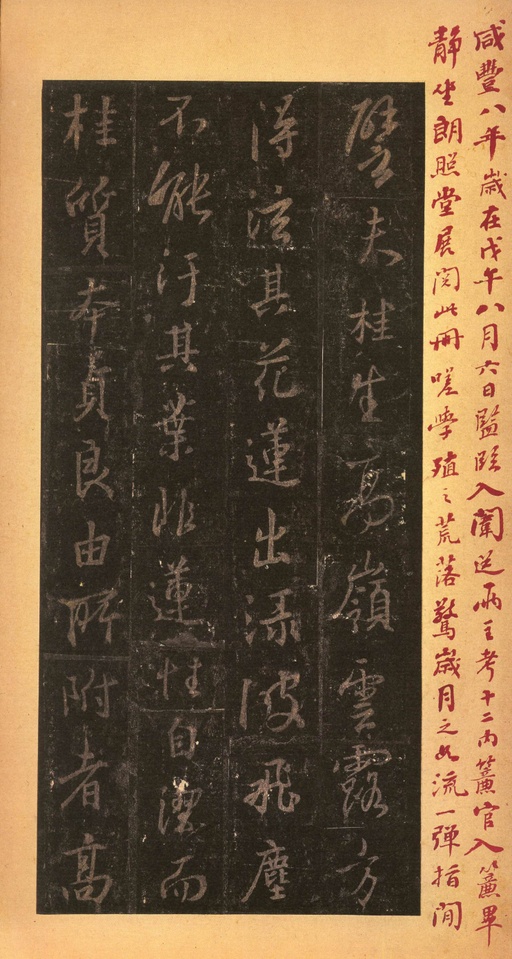 咸豐八年歲在戊午八月六日監臨入闈送兩主考十二內簾官入簾畢
靜坐朗照堂展閱此冊嗟學殖之荒落驚歲月之如流一彈指間
譬夫桂生高嶺雲露方
得泫其花蓮出淥波飛塵
不能汙其葉非蓮性自潔而
桂質本貞良由所附者高